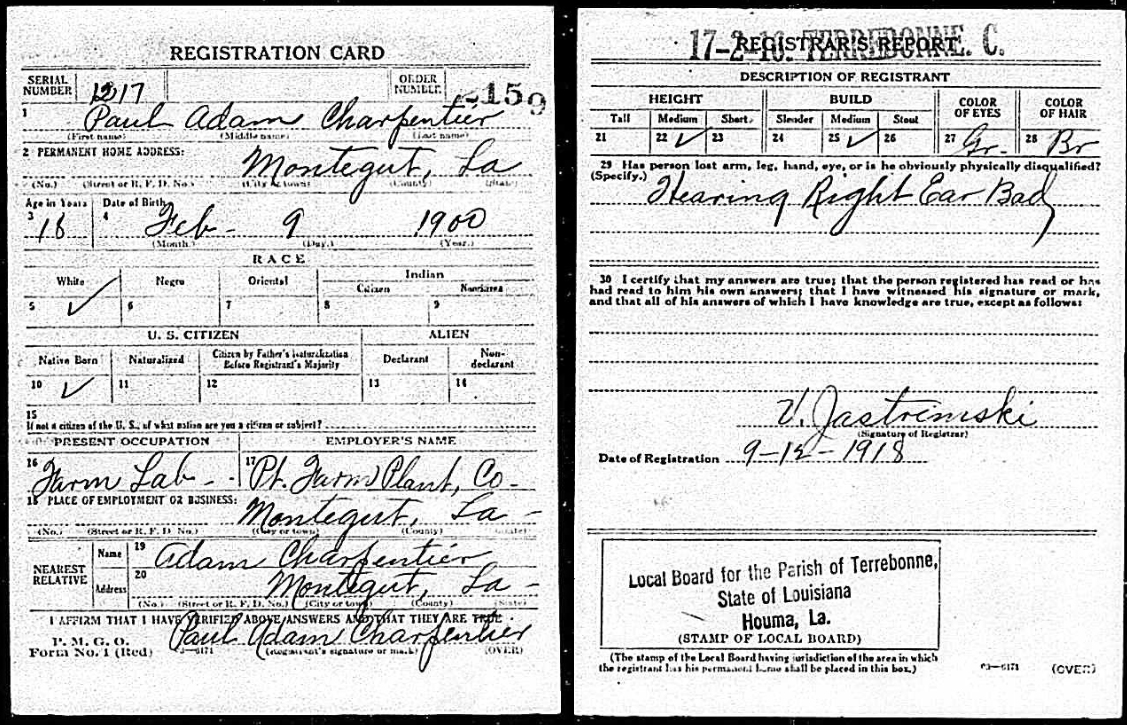 REGISTRATION CARD
SERIAL NUMBER 1217 ORDER NUMBER 2159
1 Paul Adam Charpentier
(First name) (Middle name) (Last name)
2 PERMANENT HOME ADDRESS:
Montegut, La
(No.) (Street or R. F. D. No.) (City or town) (County) (State)
Age in Years Date of Birth
3 18 4 Feb- 9 1900
(Month.) (Day.) (Year.)
RACE
White Negro Oriental Indian
Citizen Noncitizen
5 ✓ 6 7 8 9
U. S. CITIZEN ALIEN
Native Born Naturalized Citizen by Father's Naturalization Before Registrant's Majority Declarant Non-declarant
10 ✓ 11 12 13 14
15
If not a citizen of the U. S., of what nation are you a citizen or subject?
PRESENT OCCUPATION EMPLOYER'S NAME
16 Farm Lab - 17 Pt. Farm Plant, Co-
18 PLACE OF EMPLOYMENT OR BUSINESS:
Montegut, La -
(No.) (Street or R. F. D. No.) (City or town) (County) (State)
NEAREST RELATIVE
Name 19 Adam Charpentier
Address 20 Montegut, La -
(No.) (Street or R. F. D. No.) (City or town) (County) (State)
I AFFIRM THAT I HAVE VERIFIED ABOVE ANSWERS AND THAT THEY ARE TRUE
P. M. G. O.
Form No. 1 (Red) 03-6171 Paul Adam Charpentier
(Registrant's signature or mark) (OVER)
REGISTRAR'S REPORT
17-2-16. TERREBONNE. C.
DESCRIPTION OF REGISTRANT
HEIGHT BUILD COLOR OF EYES COLOR OF HAIR
Tall Medium Short Slender Medium Stout
21 22 ✓ 23 24 25 ✓ 26 27 Gr. 28 Br
29 Has person lost arm, leg, hand, eye, or is he obviously physically disqualified?
(Specify.) Hearing Right Ear Bad
30 I certify that my answers are true; that the person registered has read or has
had read to him his own answers; that I have witnessed his signature or mark,
and that all of his answers of which I have knowledge are true, except as follows:
V. Jastremski
(Signature of Registrar)
Date of Registration 9-12-1918
Local Board for the Parish of Terrebonne,
State of Louisiana
Houma, La.
(STAMP OF LOCAL BOARD)
(The stamp of the Local Board having jurisdiction of the area in which
the registrant has his permanent home shall be placed in this box.)
03-6171 (OVER)